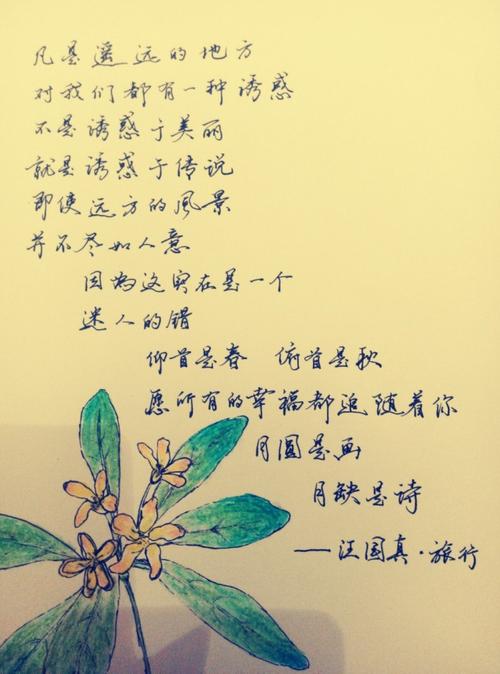 凡是遥远的地方
对我们都有一种诱惑
不是诱惑于美丽
就是诱惑于传说
即使远方的風景
并不尽如人意
因为这实在是一个
迷人的错
仰首是春 俯首是秋
愿所有的幸福都追随着你
月圆是画
月缺是诗
——汪国真·旅行